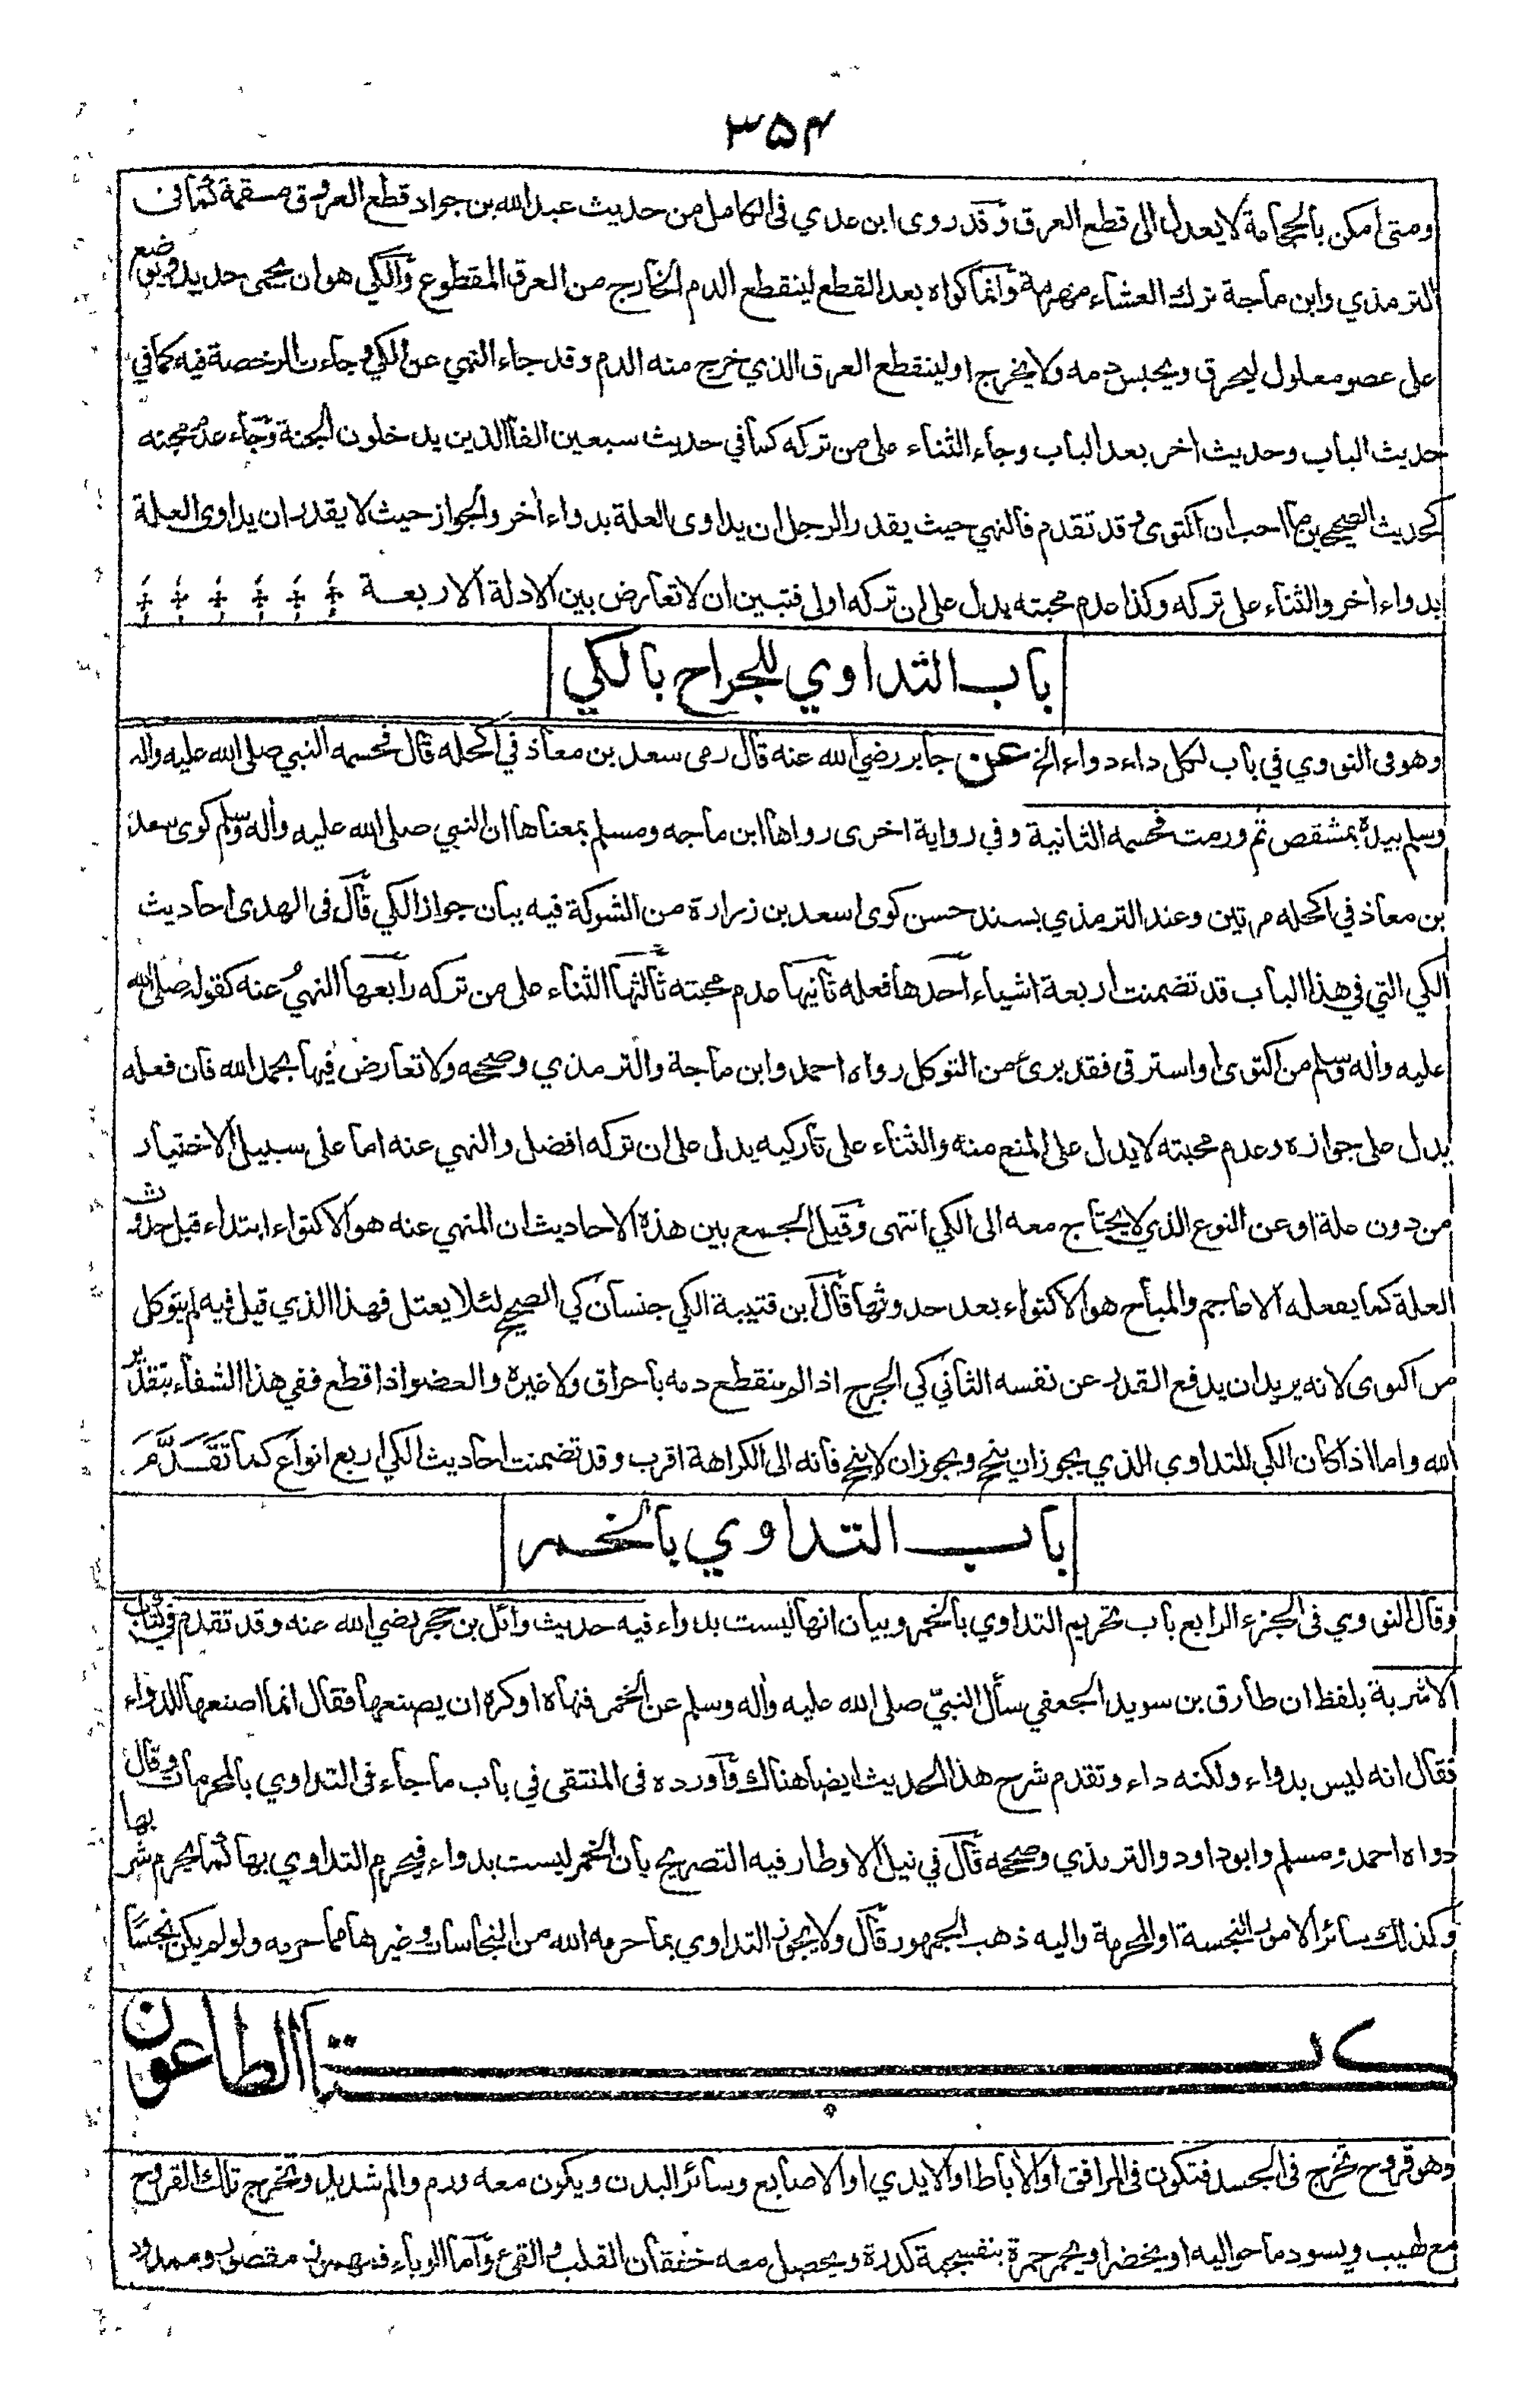 ۳۵۴
ومتى امكن بالحجامة لا يعدل الى قطع العرق وقد روى ابن عدي فى الكامل من حديث عبد الله بن جواد قطع العروق مسقمة كما فى
الترمذي وابن ماجة ترك العشاء مهرمة وانما كواه بعد القطع لينقطع الدم الخارج من العرق المقطوع والكي هو ان يحمى حديد ويوضع
على عضو معلول ليحرق ويحبس دمه ولا يخرج او لينقطع العرق الذي خرج منه الدم وقد جاء النهي عن الكي وجاءت الرخصة فيه كما في
حديث الباب وحديث اخر بعد الباب وجاء الثناء على من تركه كما في حديث سبعين الفا الذين يدخلون الجنة وجاء عدم محبته
كحديث الصحيحين ما احب ان اكتوى وقد تقدم فالنهي حيث يقدر الرجل ان يداوى العلة بدواء اخر والجواز حيث لا يقدر ان يداوى العلة
بدواء اخر والثناء على تركه وكذا عدم محبته يدل على ان تركه اولى فتبين ان لا تعارض بين الادلة الاربعة
باب التداوي للجراح بالكي
وهو فى النووي في باب لكل داء دواء الخ عن جابر رضي الله عنه قال رمى سعد بن معاذ في اكحله قال فحسمه النبي صلى الله عليه واله
وسلم بيده بمشقص ثم ورمت فحسمه الثانية وفي رواية اخرى رواها ابن ماجه ومسلم بمعناها ان النبي صلى الله عليه واله وسلم كوى سعد
بن معاذ في اكحله مرتين وعند الترمذي بسند حسن كوى اسعد بن زرارة من الشوكة فيه بيان جواز الكي قال فى الهدى احاديث
الكي التي في هذا الباب قد تضمنت اربعة اشياء احدها فعله ثانيها عدم محبته ثالثها الثناء على من تركه رابعها النهي عنه كقوله صلى الله
عليه واله وسلم من اكتوى او استرقى فقد برئ من التوكل رواه احمد وابن ماجة والترمذي وصححه ولا تعارض فيها بحمد الله فان فعله
يدل على جوازه وعدم محبته لا يدل على المنع منه والثناء على تاركيه يدل على ان تركه افضل والنهي عنه اما على سبيل الاختيار
من دون علة او عن النوع الذي لا يحتاج معه الى الكي انتهى وقيل الجمع بين هذه الاحاديث ان المنهي عنه هو الاكتواء ابتداء قبل حدوث
العلة كما يفعله الاعاجم والمباح هو الاكتواء بعد حدوثها قال ابن قتيبة الكي جنسان كي الصحيح لئلا يعتل فهذا الذي قيل فيه لم يتوكل
من اكتوى لانه يريد ان يدفع القدر عن نفسه الثاني كي الجرح اذا لم ينقطع دمه باحراق ولا غيره والعضو اذا قطع ففي هذا الشفاء بتقدير
الله واما اذا كان الكي للتداوي الذي يجوز ان ينجح ويجوز ان لا ينجح فانه الى الكراهة اقرب وقد تضمنت احاديث الكي اربع انواع كما تَقَدَّمَ
باب التداوي بالخمر
وقال النووي فى الجزء الرابع باب تحريم التداوي بالخمر وبيان انها ليست بدواء فيه حديث وائل بن حجر رضي الله عنه وقد تقدم في كتاب
الاشربة بلفظ ان طارق بن سويد الجعفي سأل النبيّ صلى الله عليه واله وسلم عن الخمر فنهاه او كره ان يصنعها فقال انما اصنعها للدواء
فقال انه ليس بدواء ولكنه داء وتقدم شرح هذا الحديث ايضا هناك واورده فى المنتقى في باب ما جاء فى التداوي بالمحرمات وقال
رواه احمد ومسلم وابو داود والترمذي وصححه قال في نيل الاوطار فيه التصريح بان الخمر ليست بدواء فيحرم التداوي بها كما يحرم شربها
وكذلك سائر الامور النجسة او المحرمة واليه ذهب الجمهور قال ولا يجوز التداوي بما حرمه الله من النجاسات وغيرها مما حرمه ولو لم يكن نجسًا
كتاب الطاعون
وهو قروح تخرج فى الجسد فتكون فى المرافق او الأباط او الايدي او الاصابع وسائر البدن ويكون معه ورم والم شديد وتخرج تلك القروح
مع لهيب ويسود ما حواليه او يخضر او يحمر حمرة بنفسجية كدرة ويحصل معه خفقان القلب والقئ واما الوباء فهو مقصور وممدود